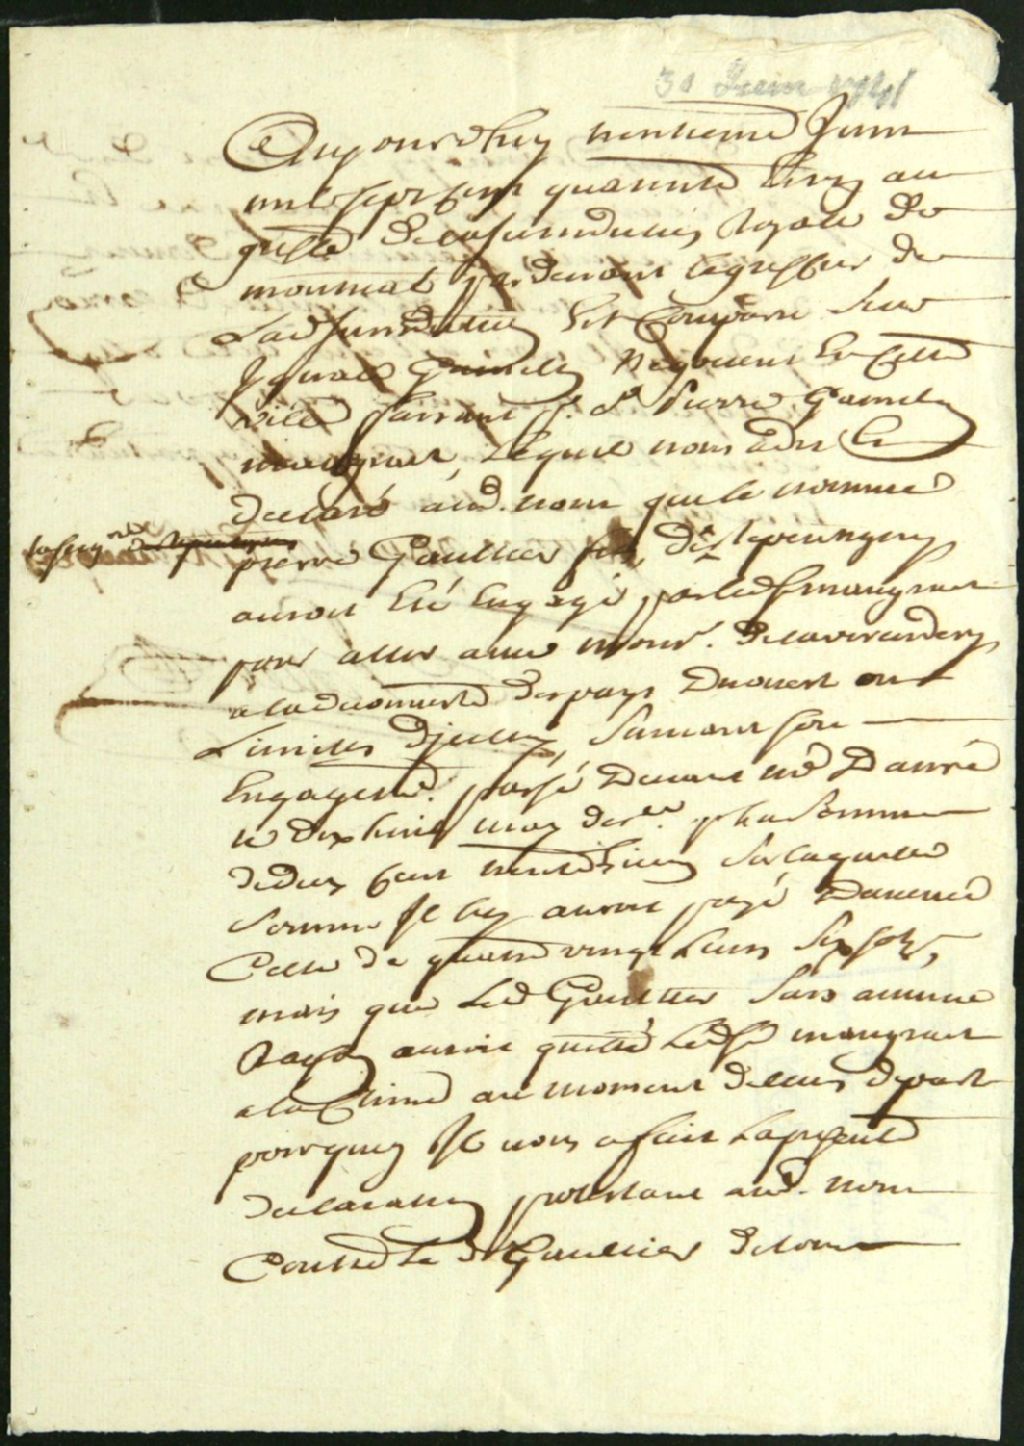 30 Juin 1741
Aujourdhuy trentieme Juin
mil sept cent quarente un au
greffe dela Jurisdiction Royale de
montreal pardevant le greffier de
Lad Jurisdiction Est Comparu Sieur
Ignace Gamelin Negociant En Cette
ville faisant p. Sr Pierre Gamelin
maugras, Lequel nous a dit Et
declaré aud. nom que le nommé
pierre Gaultier dit
auroit Eté Engagé par led Sr maugras
pour aller avec monsr. delaverandery
a la decouverte des pays Douest
, Suivant son
Engagemt. passé Devant me Danré
le dix huit may der.er p la Somme
de deux cent Sur laquelle
Somme Il luy auroit payé Davance
Celle de quatre vingt Six sols,
mais que Led Gaultier Sans aucune
Raison auroit quitté Led Sr maugras
a la Chine au moment de leur depart
pourquoy Il nous a fait La presente
declaration protestant aud. nom
Contre Le d Gaultier de tous